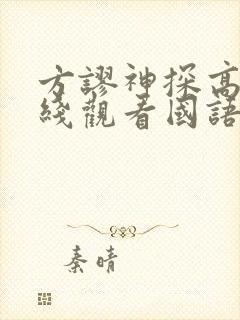 方謬神探高
綫觀看國語
秦晴